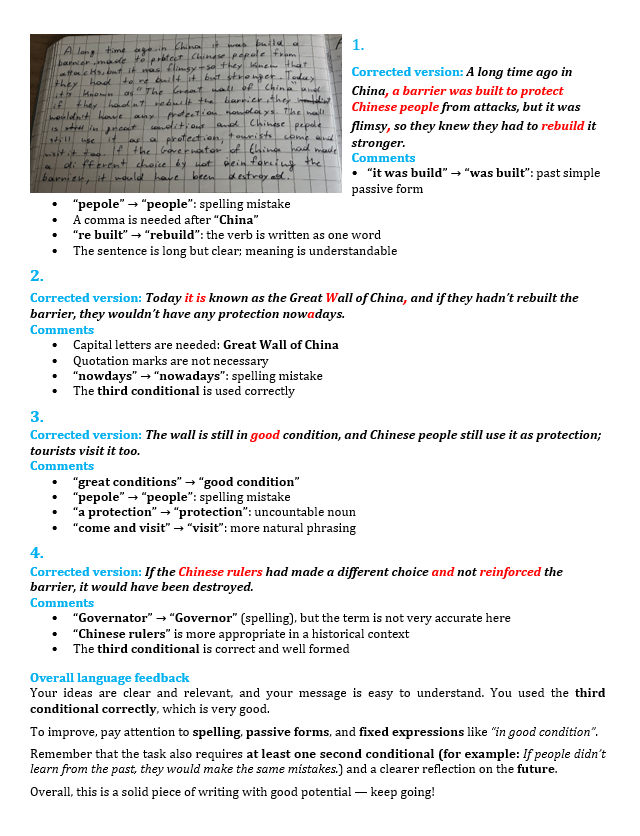 A long time ago in China it was build a
barrier made to protect Chinese pepole from
attacks, but it was flimsy so they knew that
they had to re built it but stronger. Today
it's known as "The Great wall of China and
if they hadn't rebuilt the barrier they
wouldn't have any protection nowdays. The wall
is still in great conditions and Chinese pepole
still use it as a protection, tourists come and
visit it too. If the Governator of China had made
a different choice by not reinforcing the
barrier, it would have been destroyed.
1.
Corrected version: A long time ago in
China, a barrier was built to protect
Chinese people from attacks, but it was
flimsy, so they knew they had to rebuild it
stronger.
Comments
• “it was build” → “was built”: past simple
passive form
• “pepole” → “people”: spelling mistake
• A comma is needed after “China”
• “re built” → “rebuild”: the verb is written as one word
• The sentence is long but clear; meaning is understandable
2.
Corrected version: Today it is known as the Great Wall of China, and if they hadn’t rebuilt the
barrier, they wouldn’t have any protection nowadays.
Comments
• Capital letters are needed: Great Wall of China
• Quotation marks are not necessary
• “nowdays” → “nowadays”: spelling mistake
• The third conditional is used correctly
3.
Corrected version: The wall is still in good condition, and Chinese people still use it as protection;
tourists visit it too.
Comments
• “great conditions” → “good condition”
• “pepole” → “people”: spelling mistake
• “a protection” → “protection”: uncountable noun
• “come and visit” → “visit”: more natural phrasing
4.
Corrected version: If the Chinese rulers had made a different choice and not reinforced the
barrier, it would have been destroyed.
Comments
• “Governator” → “Governor” (spelling), but the term is not very accurate here
• “Chinese rulers” is more appropriate in a historical context
• The third conditional is correct and well formed
Overall language feedback
Your ideas are clear and relevant, and your message is easy to understand. You used the third
conditional correctly, which is very good.
To improve, pay attention to spelling, passive forms, and fixed expressions like “in good condition”.
Remember that the task also requires at least one second conditional (for example: If people didn’t
learn from the past, they would make the same mistakes.) and a clearer reflection on the future.
Overall, this is a solid piece of writing with good potential — keep going!